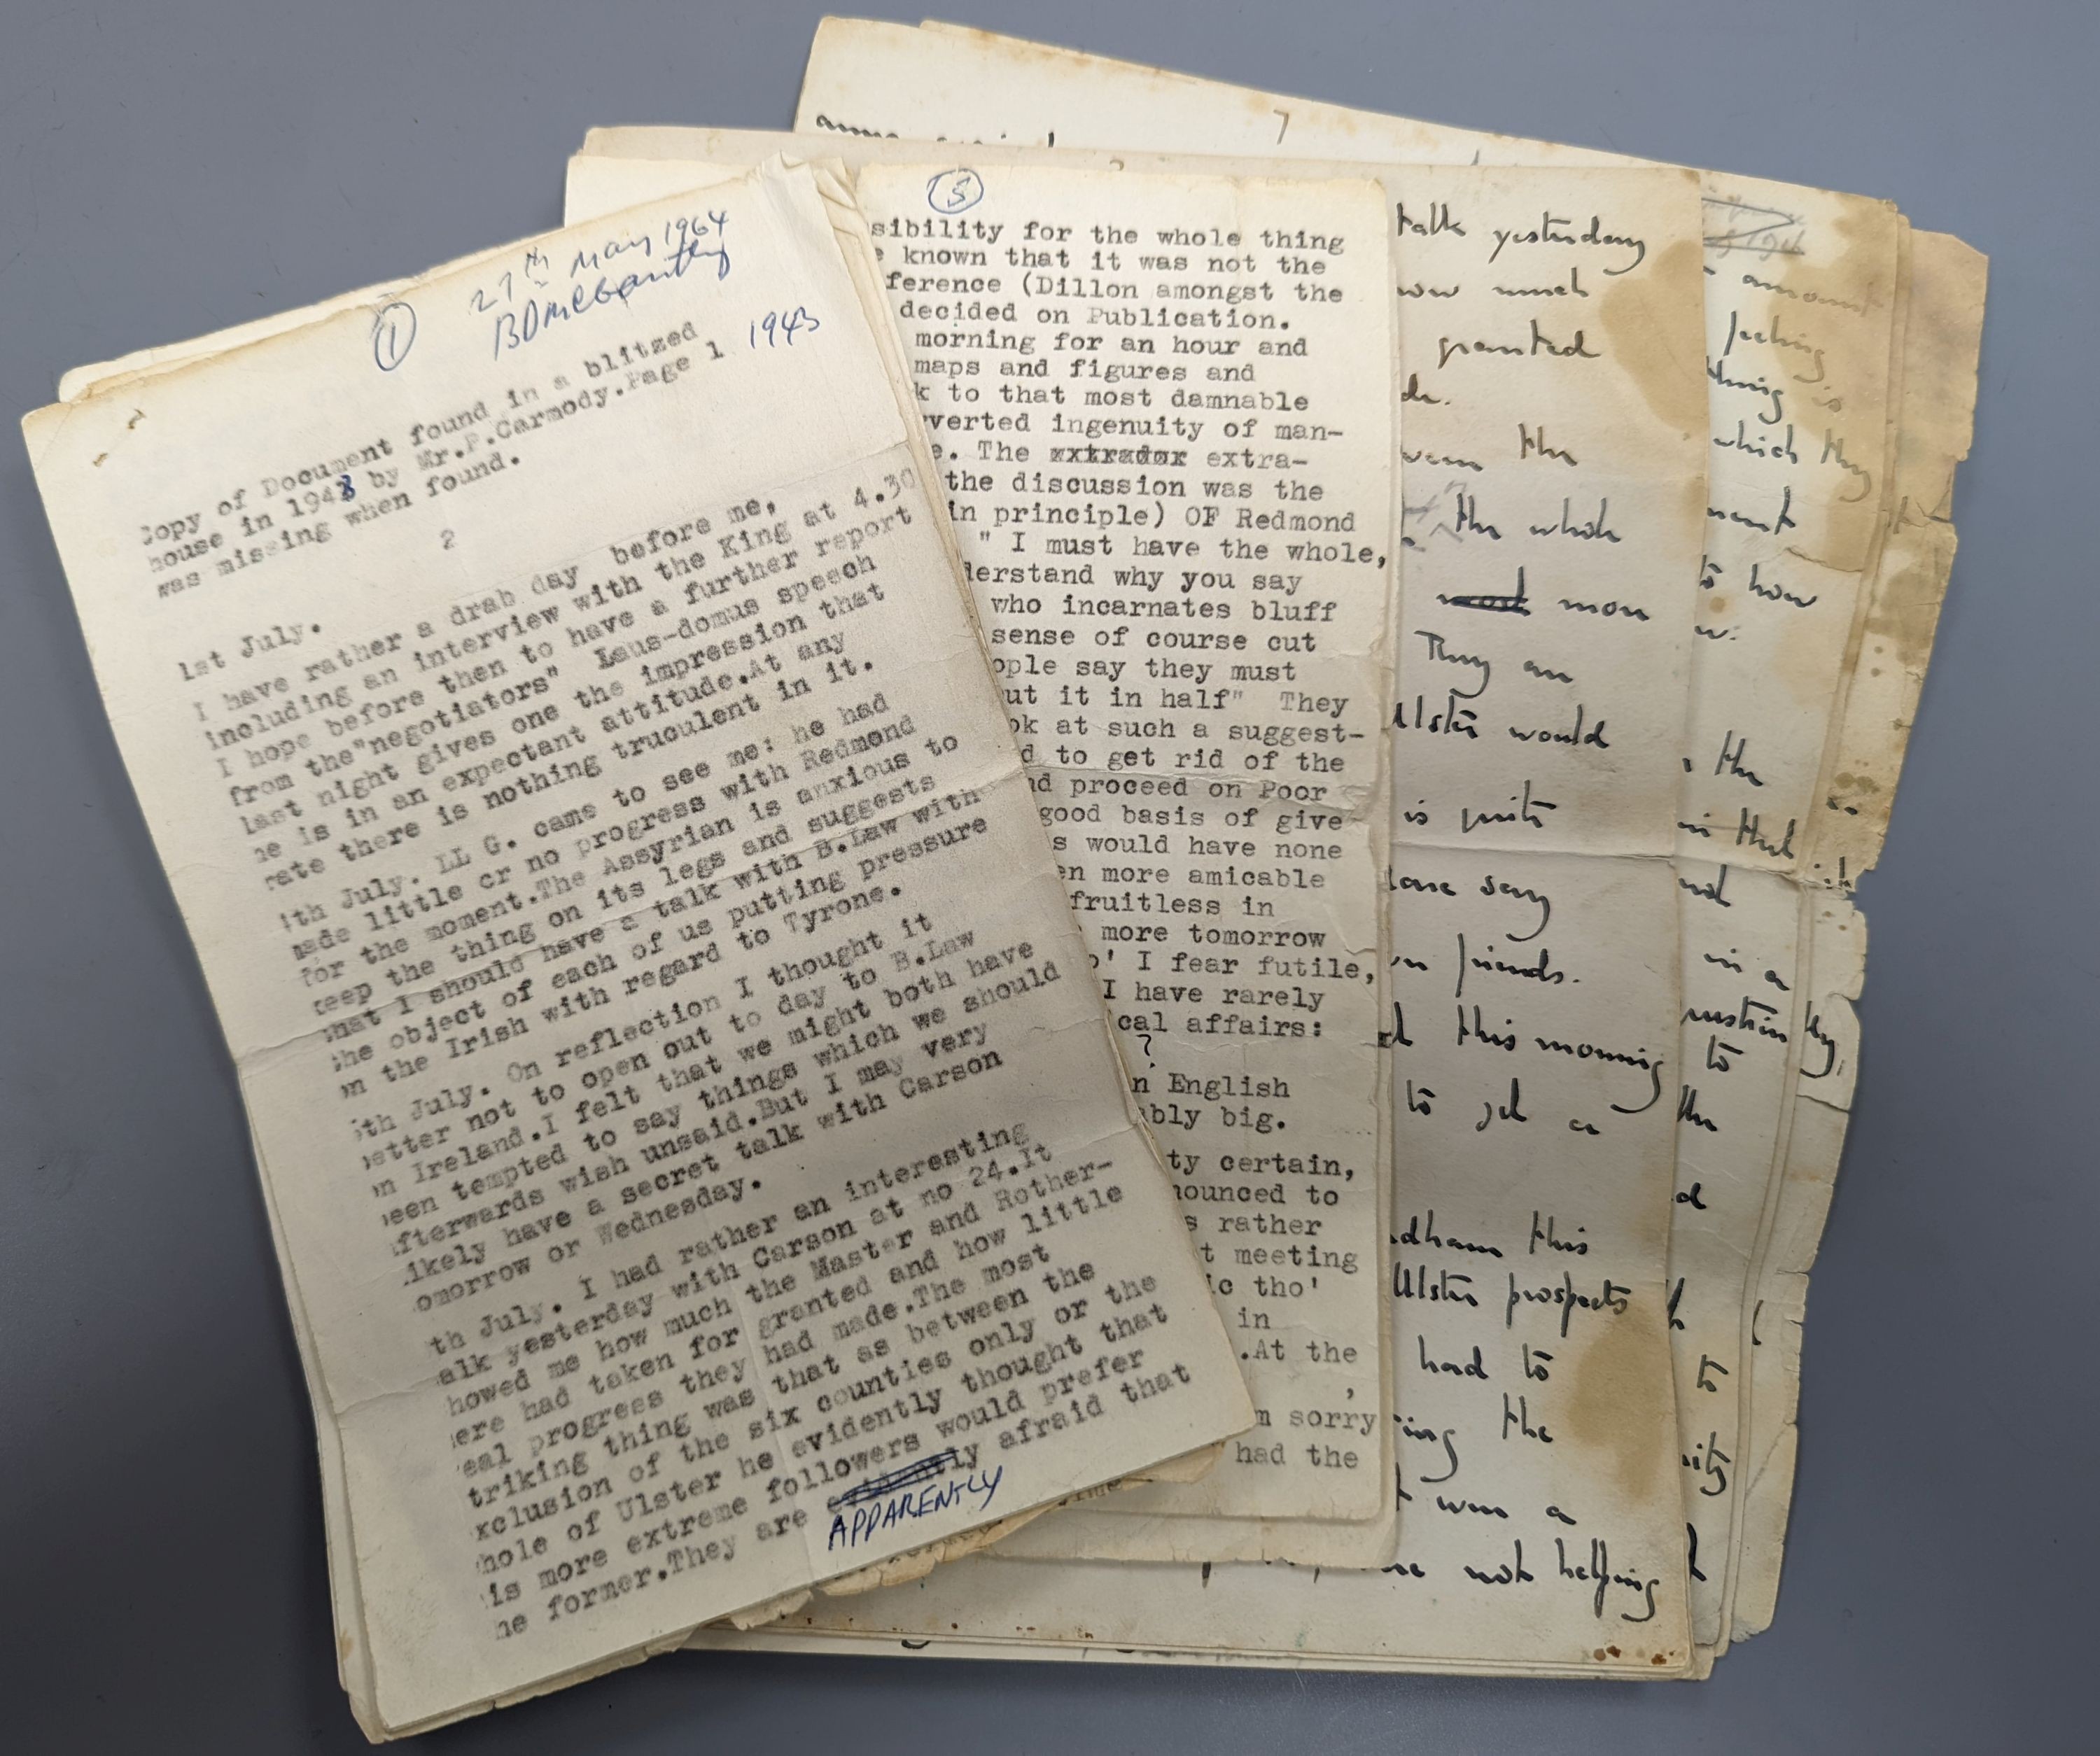 ①
27th May 1964
Copy of Document found in a blitzed
house in 1943 by Mr.P.Carmody.Page 1 1943
was missing when found.
2
1st July.
I have rather a drab day before me,
including an interview with the King at 4.30
I hope before then to have a further report
from the"negotiators" Laus-domus speech
last night gives one the impression that
he is in an expectant attitude.At any
rate there is nothing truculent in it.
th July. LL G. came to see me: he had
made little or no progress with Redmond
for the moment.The Assyrian is anxious to
keep the thing on its legs and suggests
that I should have a talk with B.Law with
the object of each of us putting pressure
on the Irish with regard to Tyrone.
th July. On reflection I thought it
etter not to open out to day to B.Law
on Ireland.I felt that we might both have
een tempted to say things which we should
fterwards wish unsaid.But I may very
ikely have a secret talk with Carson
omorrow or Wednesday.
th July. I had rather an interesting
alk yesterday with Carson at no 24.It
howed me how much the Master and Rother-
ere had taken for granted and how little
eal progress they had made.The most
triking thing was that as between the
xclusion of the six counties only or the
hole of Ulster he evidently thought that
is more extreme followers would prefer
he former.They are evidently afraid that
APPARENTLY
⑤
sibility for the whole thing
e known that it was not the
ference (Dillon amongst the
decided on Publication.
morning for an hour and
maps and figures and
k to that most damnable
rverted ingenuity of man-
e. The xxtrador extra-
the discussion was the
in principle) OF Redmond
" I must have the whole,
derstand why you say
who incarnates bluff
sense of course cut
ople say they must
ut it in half" They
ok at such a suggest-
d to get rid of the
nd proceed on Poor
good basis of give
s would have none
en more amicable
fruitless in
more tomorrow
o' I fear futile,
I have rarely
cal affairs:
?
n English
ably big.
ty certain,
nounced to
s rather
t meeting
ic tho'
in
.At the
,
m sorry
had the
7
talk yesterday
how much
granted
de.
ween the
the whole
most more
They are
Ulster would
is quite
dare say
own friends.
d this morning
to get a
dham this
Ulster prospects
had to
ing the
was a
are not helping
amount
feeling
thing is
which they
ment
to how
the
in that
not
in a
to
the
d
to